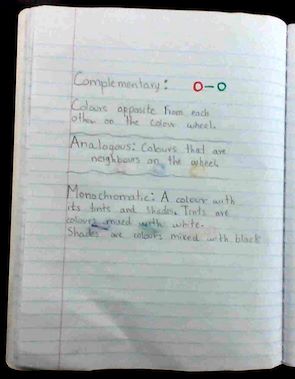 Complementary:
Colours opposite from each
other on the colour wheel.
Analogous: Colours that are
neighbours on the wheel
Monochromatic: A colour with
its tints and shades. Tints are
colours mixed with white.
Shades are colours mixed with black